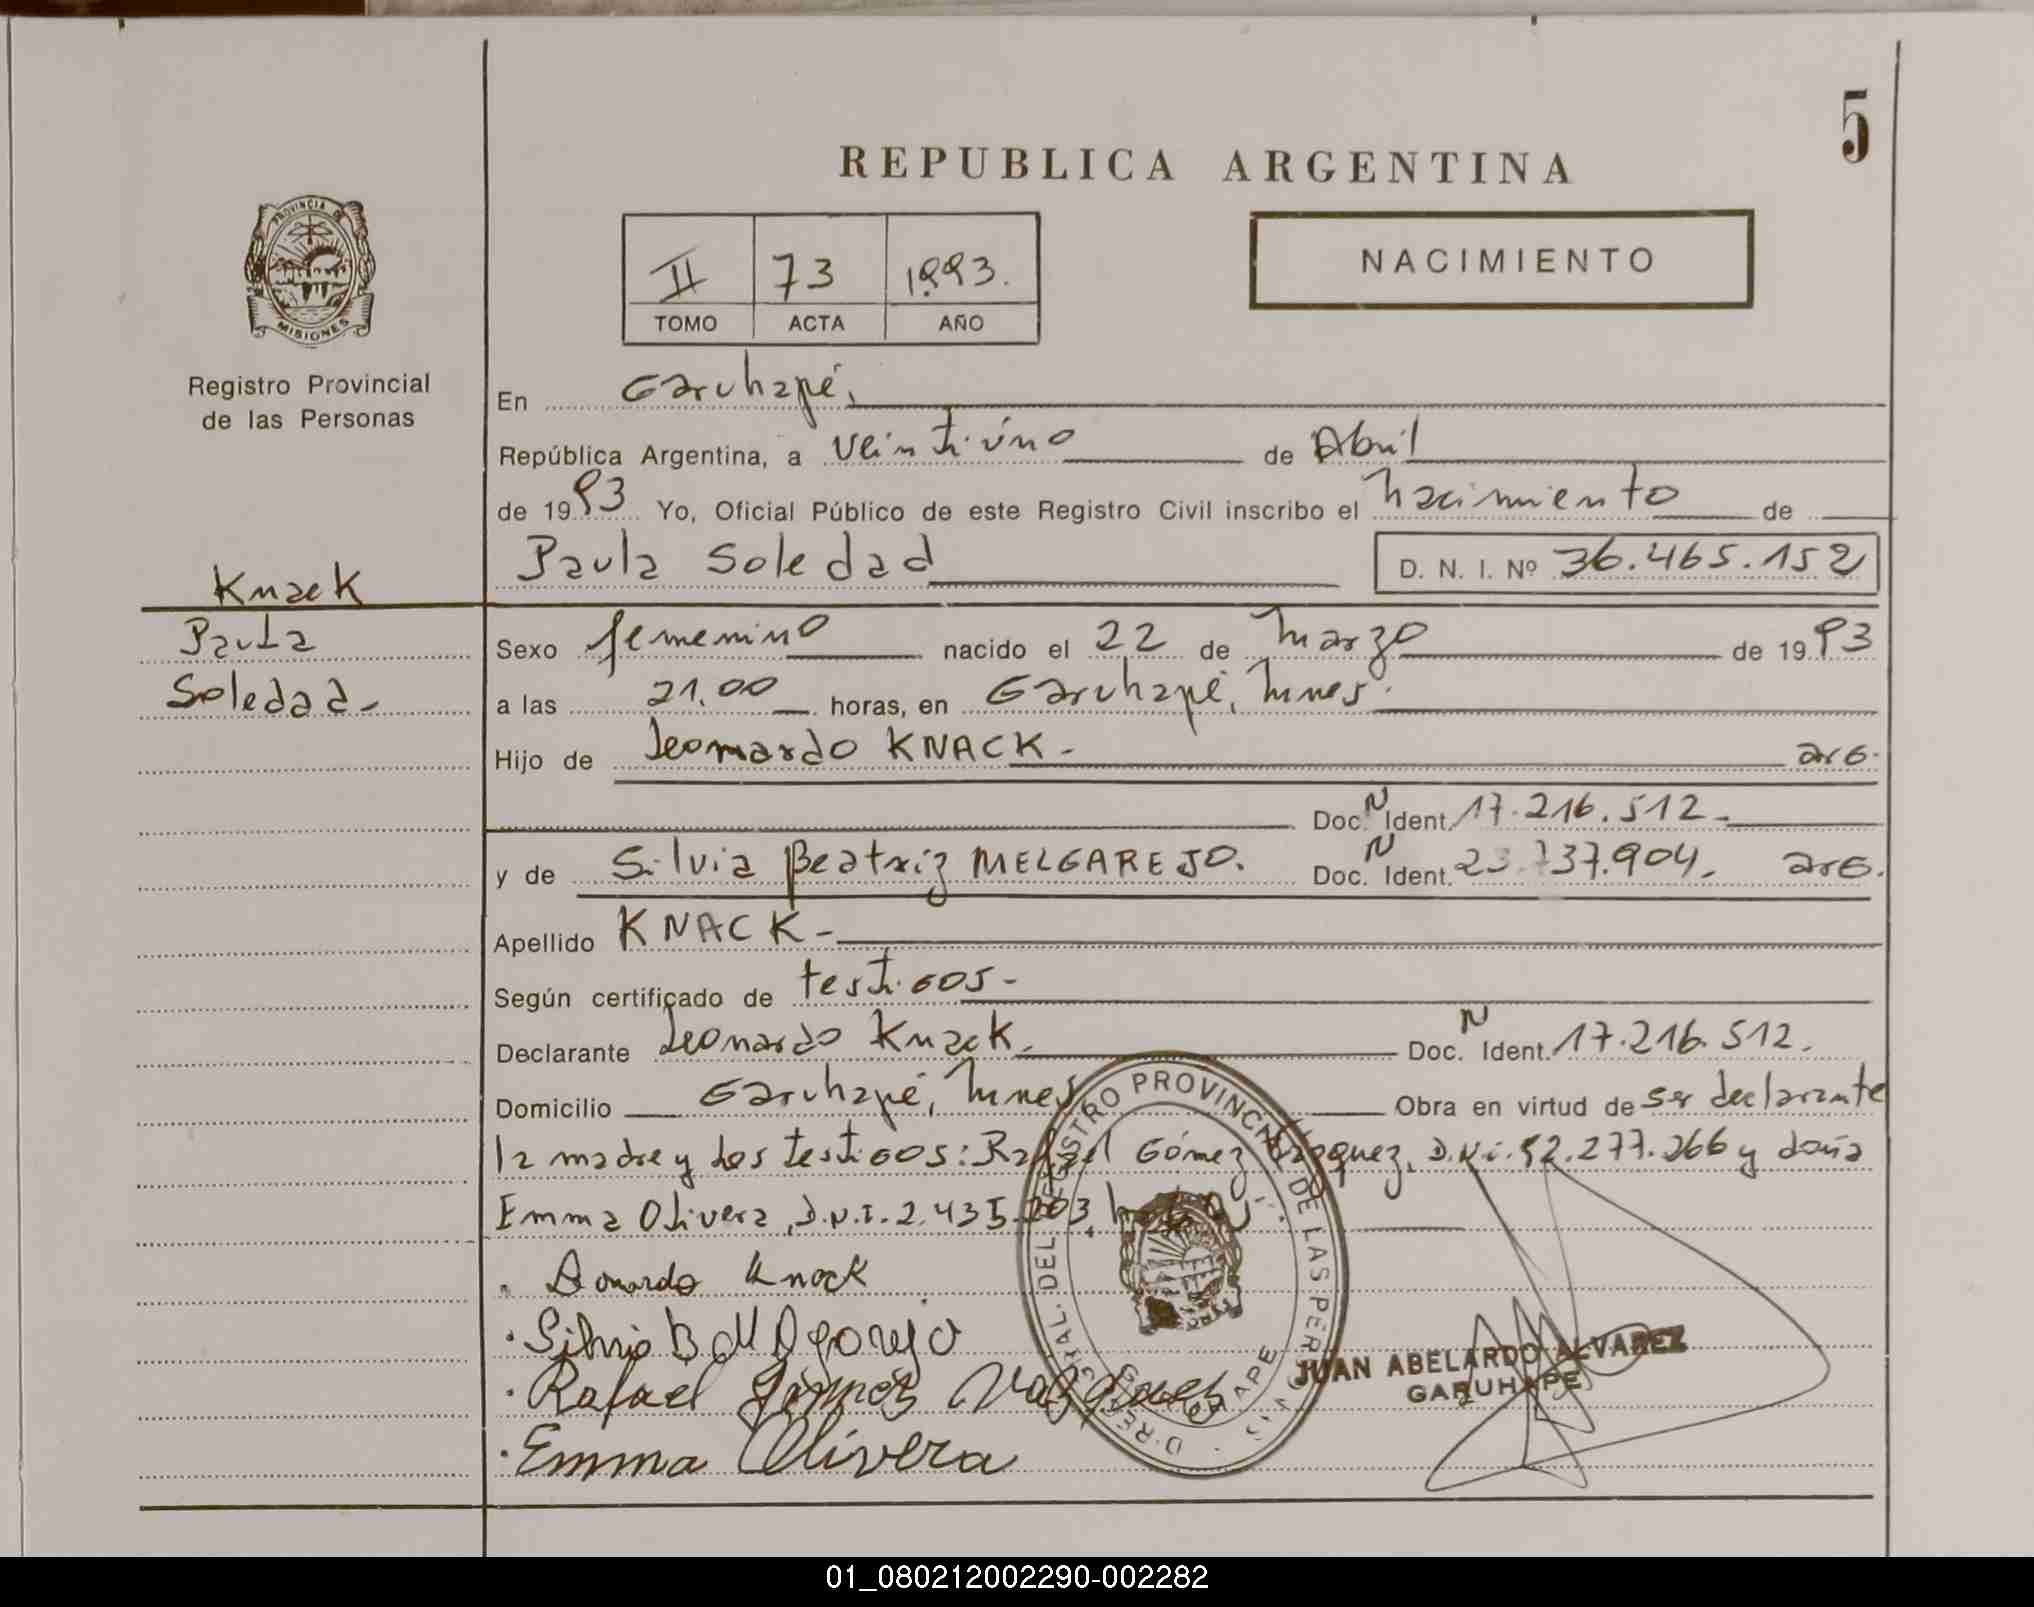 5
REPUBLICA ARGENTINA
PROVINCIA DE
MISIONES
Registro Provincial
de las Personas
II 73 1993.
TOMO ACTA AÑO
NACIMIENTO
En Garuhapé,
República Argentina, a veintiúno de Abril
de 1993 Yo, Oficial Público de este Registro Civil inscribo el nacimiento de
Paula Soledad D. N. I. Nº 36.465.152
Knack
Paula
Soledad-
Sexo femenino nacido el 22 de marzo de 1993
a las 21.00 horas, en Garuhapé, Mnes.
Hijo de Leonardo KNACK- arg.
Doc. N Ident. 17.216.512.-
y de Silvia Beatriz MELGAREJO. Doc. N Ident. 23.737.904.- arg.
Apellido KNACK-
Según certificado de testigos-
Declarante Leonardo Knack. Doc. N Ident. 17.216.512.
Domicilio Garuhapé, Mnes Obra en virtud de ser declarante
la madre y los testigos: Rafael Gómez Vázquez, D.N.i. 92.277.266 y doña
Emma Olivera, D.N.I. 2.435.203,
Leonardo Knack
Silvia B Melgarejo
Rafael Gomez Vazquez
Emma Olivera
REGISTRO PROVINCIAL DE LAS PERSONAS
GARUHAPE
JUAN ABELARDO ALVAREZ
GARUHAPE
01_080212002290-002282